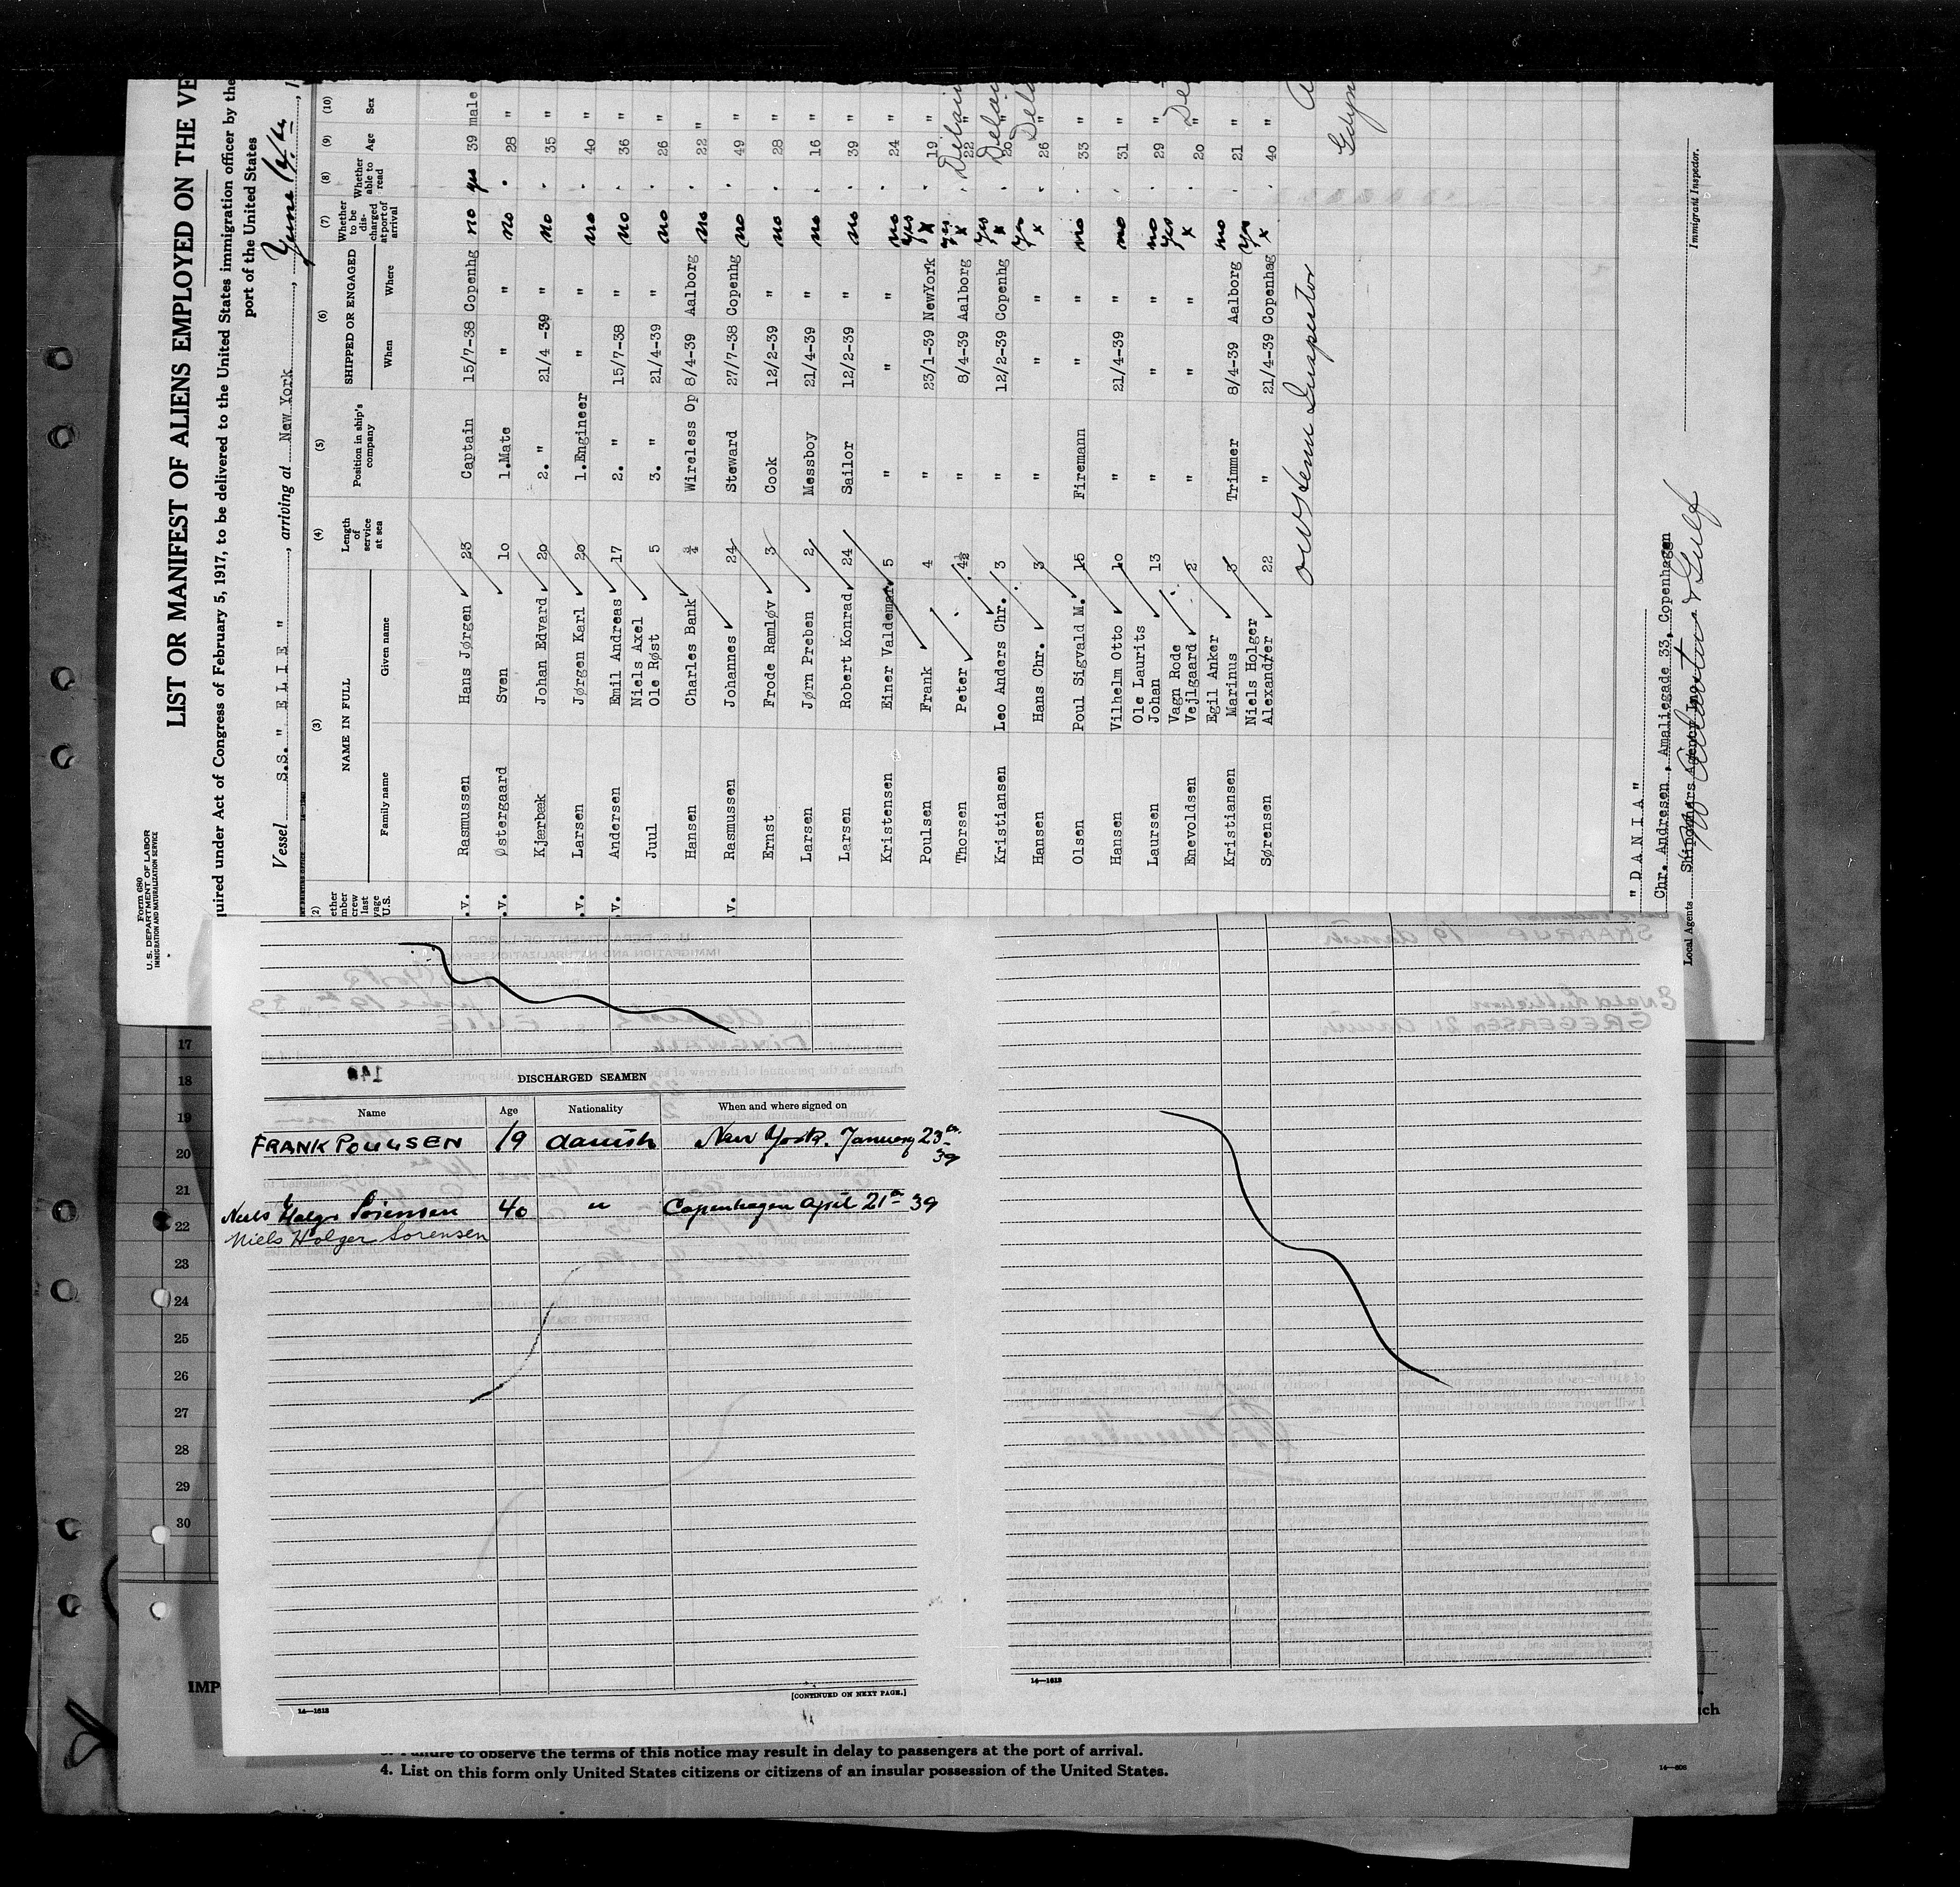 Form 680
U. S. DEPARTMENT OF LABOR
IMMIGRATION AND NATURALIZATION SERVICE
LIST OR MANIFEST OF ALIENS EMPLOYED ON THE VE
quired under Act of Congress of February 5, 1917, to be delivered to the United States immigration officer by the
port of the United States
Vessel S.S. " E L I E ", arriving at New York, June 14th, 1
(2) (3) (4) (5) (6) (7) (8) (9) (10)
NAME IN FULL SHIPPED OR ENGAGED
Family name Given name Length of service at sea Position in ship's company When Where Whether to be discharged at port of arrival Whether able to read Age Sex
.v. Rasmussen Hans Jørgen 23 Captain 15/7-38 Copenhg no yes 39 male
.v. Østergaard Sven 10 1.Mate " " no " 28 "
Kjærbæk Johan Edvard 20 2. " 21/4 -39 " no " 35 "
.v. Larsen Jørgen Karl 20 1.Engineer " " no " 40 "
.v. Andersen Emil Andreas 17 2. " 15/7-38 " no " 36 "
Juul Niels Axel Ole Røst 5 3. " 21/4-39 " no " 26 "
Hansen Charles Bank ¾ Wireless Op 8/4-39 Aalborg no " 22 "
.v. Rasmussen Johannes 24 Steward 27/7-38 Copenhg no " 49 "
Ernst Frode Ramløv 3 Cook 12/2-39 " no " 28 "
Larsen Jørn Preben 2 Messboy 21/4-39 " no " 16 "
Larsen Robert Konrad 24 Sailor 12/2-39 " no " 39 "
Kristensen Einer Valdemar 5 " " " no " 24 "
Poulsen Frank 4 " 23/1-39 NewYork yes x " 19 "
Thorsen Peter 4½ " 8/4-39 Aalborg yes x " 22 "
Kristiansen Leo Anders Chr. 3 " 12/2-39 Copenhg yes x " 20 "
Hansen Hans Chr. 3 " " " yes x " 26 "
Olsen Poul Sigvald M. 15 Firemann " " no " 33 "
Hansen Vilhelm Otto 10 " 21/4-39 " no " 31 "
Laursen Ole Laurits Johan 13 " " " no " 29 "
Enevoldsen Vagn Rode Vejlgaard 2 " " " yes x " 20 "
Kristiansen Egil Anker Marinus 3 Trimmer 8/4-39 Aalborg no " 21 "
Sørensen Niels Holger Alexandrer 22 " 21/4-39 Copenhag yes x " 40 "
Gdyn
" D A N I A "
Chr. Andresen , Amaliegade 33, Copenhagen
Local Agents
& Gulf
Immigrant Inspector.
DISCHARGED SEAMEN
Name Age Nationality When and where signed on
FRANK POULSEN 19 danish New York. January 23rd 39
Niels Holger Sørensen 40 " Copenhagen april 21st 39
Niels Holger Sorensen
[CONTINUED ON NEXT PAGE.]
14—1613
14—1613
17
18
19
20
21
22
23
24
25
26
27
28
29
30
IMP
ch
Failure to observe the terms of this notice may result in delay to passengers at the port of arrival.
4. List on this form only United States citizens or citizens of an insular possession of the United States.